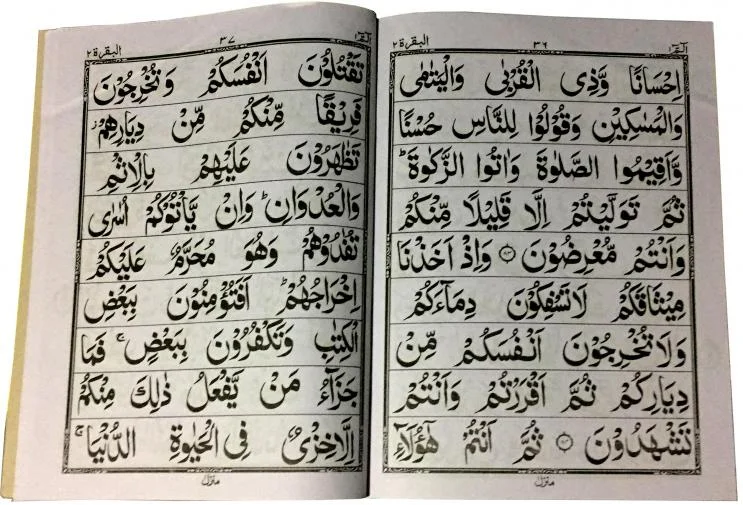 الٓمّٓ ١ ٣٦ البقرة ٢
اِحْسَانًا وَّذِي الْقُرْبٰى وَالْيَتٰمٰى
وَالْمَسٰكِيْنِ وَقُوْلُوْا لِلنَّاسِ حُسْنًا
وَّاَقِيْمُوا الصَّلٰوةَ وَاٰتُوا الزَّكٰوةَ ؕ
ثُمَّ تَوَلَّيْتُمْ اِلَّا قَلِيْلًا مِّنْكُمْ
وَاَنْتُمْ مُّعْرِضُوْنَ ۝٨٣ وَاِذْ اَخَذْنَا
مِيْثَاقَكُمْ لَا تَسْفِكُوْنَ دِمَآءَكُمْ
وَلَا تُخْرِجُوْنَ اَنْفُسَكُمْ مِّنْ
دِيَارِكُمْ ثُمَّ اَقْرَرْتُمْ وَاَنْتُمْ
تَشْهَدُوْنَ ۝٨٤ ثُمَّ اَنْتُمْ هٰٓؤُلَآءِ
منزل
الٓمّٓ ١ ٣٧ البقرة ٢
تَقْتُلُوْنَ اَنْفُسَكُمْ وَتُخْرِجُوْنَ
فَرِيْقًا مِّنْكُمْ مِّنْ دِيَارِهِمْ ز
تَظٰهَرُوْنَ عَلَيْهِمْ بِالْاِثْمِ
وَالْعُدْوَانِ ؕ وَاِنْ يَّاْتُوْكُمْ اُسٰرٰى
تُفٰدُوْهُمْ وَهُوَ مُحَرَّمٌ عَلَيْكُمْ
اِخْرَاجُهُمْ ؕ اَفَتُؤْمِنُوْنَ بِبَعْضِ
الْكِتٰبِ وَتَكْفُرُوْنَ بِبَعْضٍ ۚ فَمَا
جَزَآءُ مَنْ يَّفْعَلُ ذٰلِكَ مِنْكُمْ
اِلَّا خِزْيٌ فِي الْحَيٰوةِ الدُّنْيَا ۚ
منزل